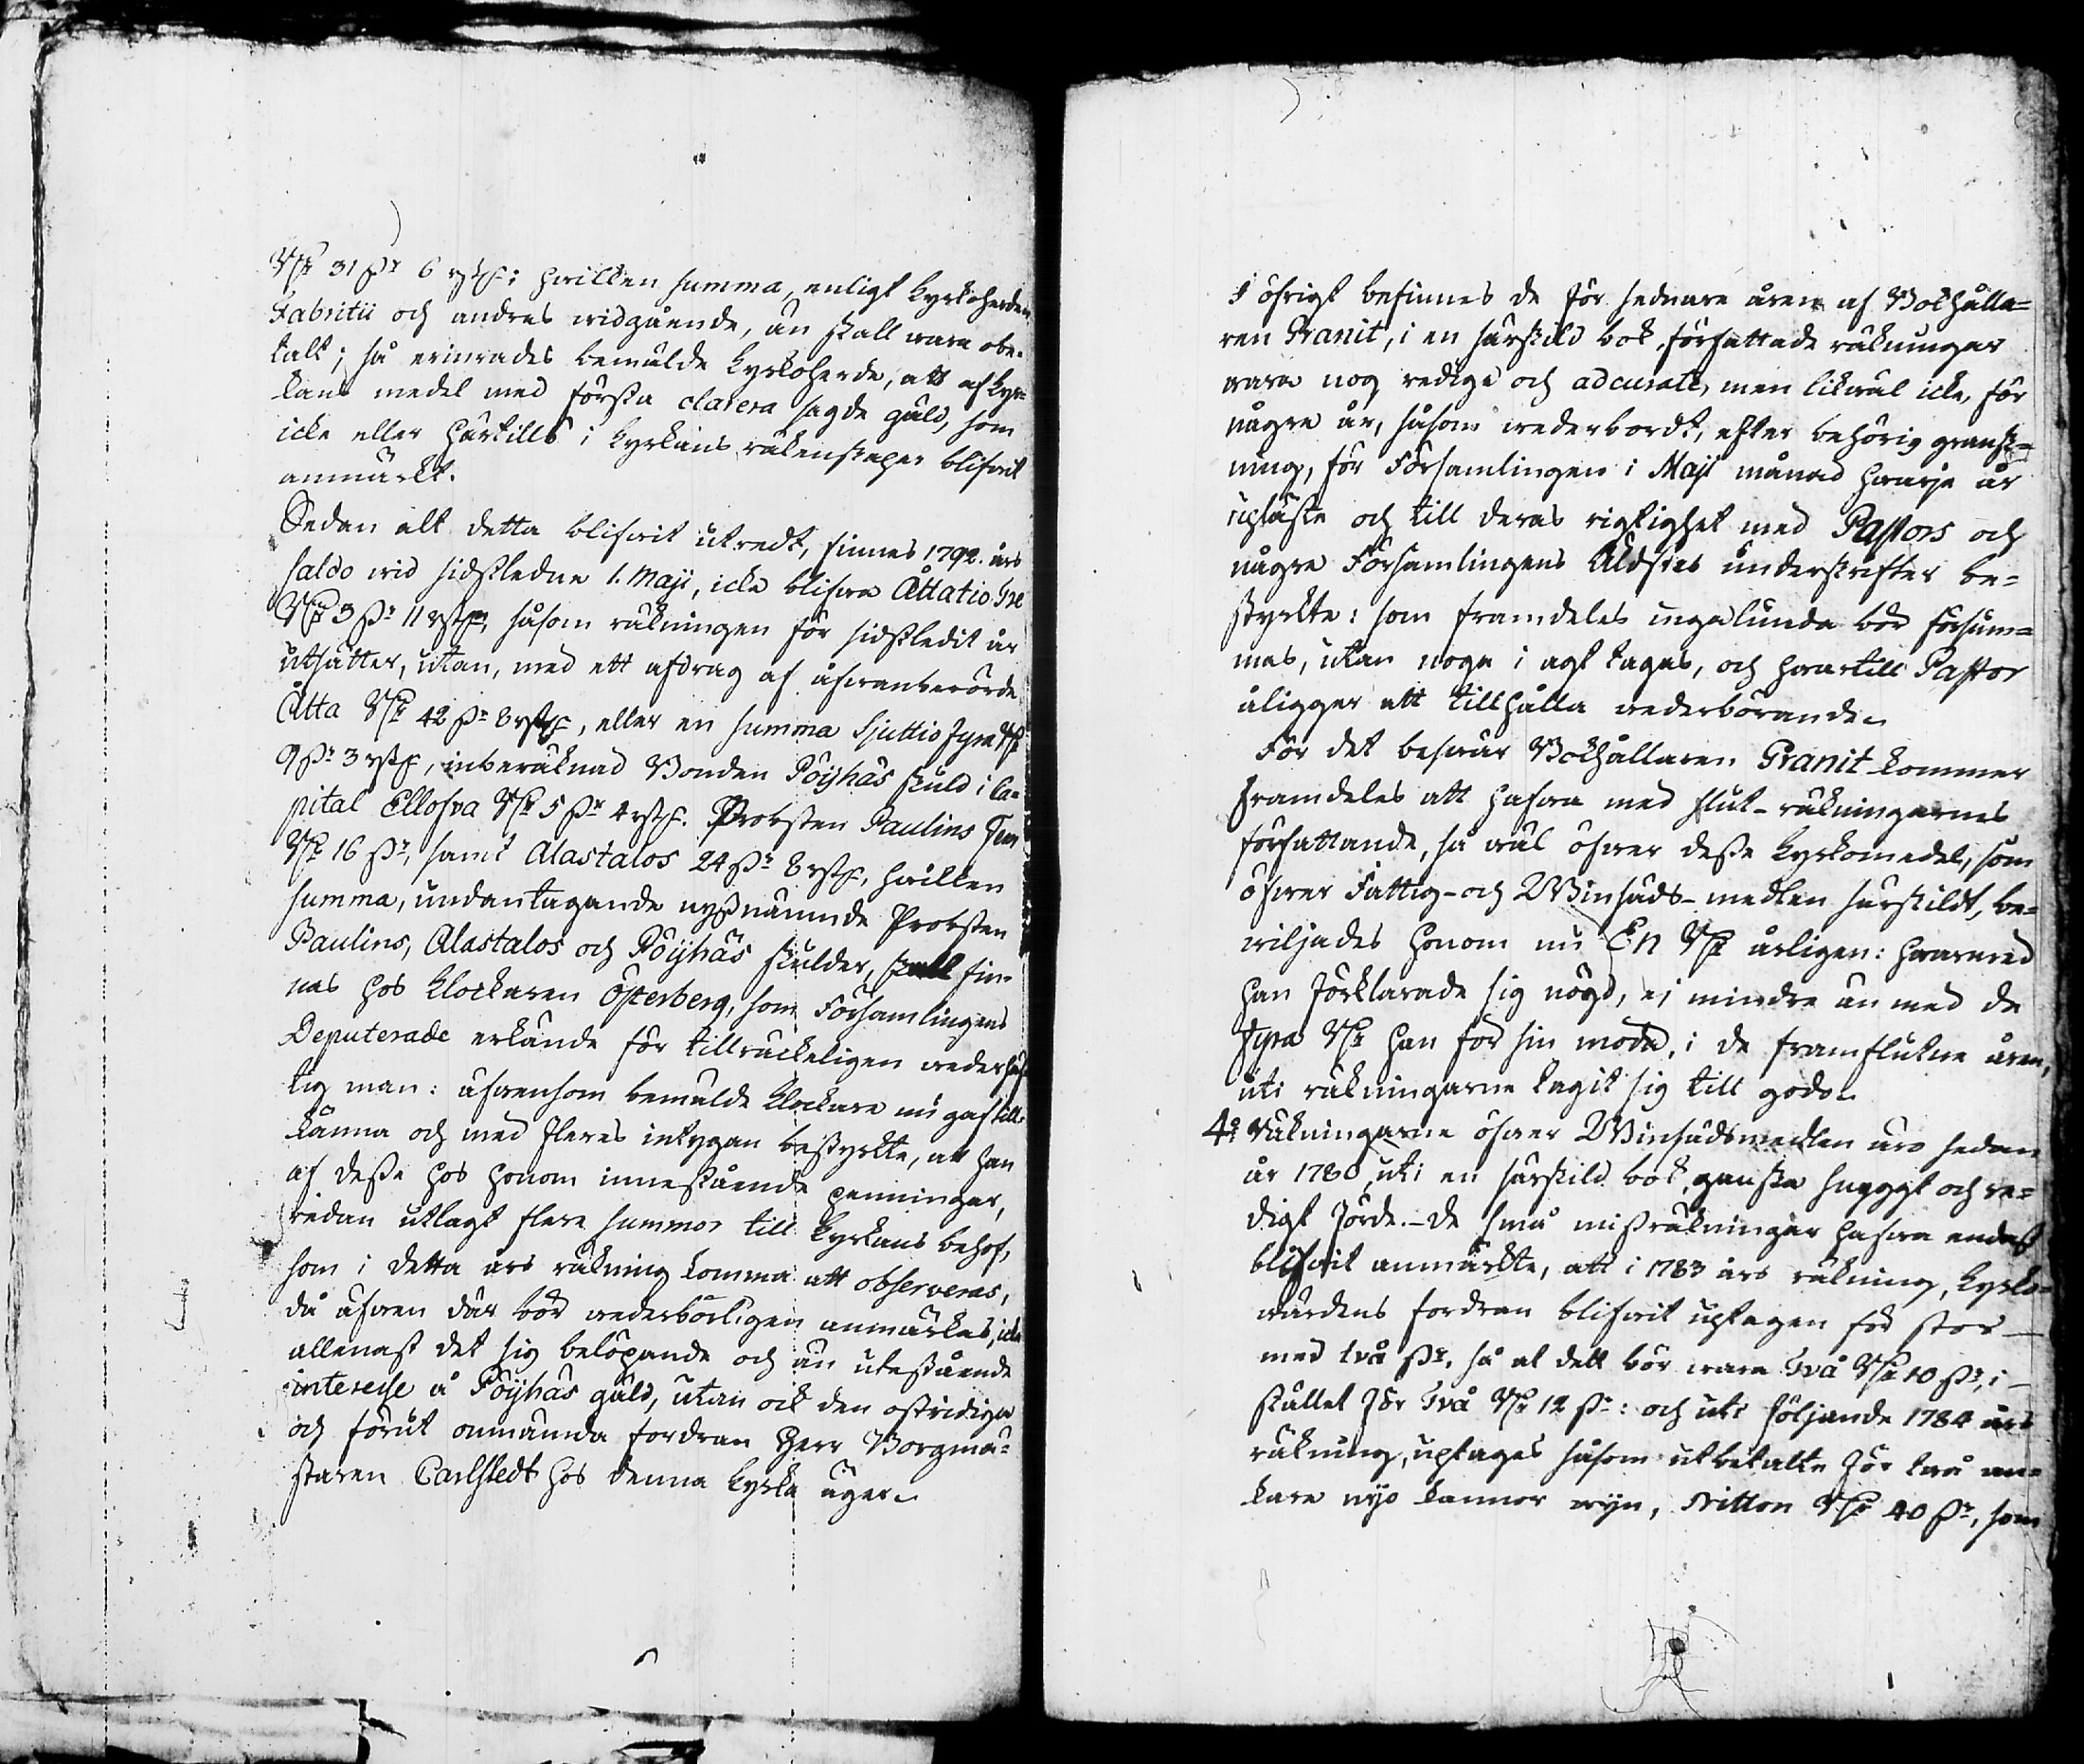 Rdr 31 ßr 6 rstf: hwilken summa, enligt Kyrkoherden
Fabritii och andras widgående, än skall wara obe-
talt; så erinrades bemälde Kyrkoherde, att af Kyr-
kans medel med första clarera sagde gäld, som
icke eller härtills i Kyrkans räkenskaper blifwit
anmärkt.
Sedan alt detta blifwit utredt, finnes 1792. års
saldo wid sidstledne 1. Maji, icke blifwa Åttatio Tre
Rdr 3 ßr 11 rstf, såsom räkningen för sidstledit år
utsätter, utan, med ett afdrag af åfwanberörde
Åtta Rdr 42 ßr 8 rstf, eller en summa Sjuttio Fyra Rdr
9 ßr 3 rstf, inberäknad Bonden Pöyhäs skuld i Ca-
pital Ellofva Rdr 5 ßr 4 rstf. Probsten Paulins Fem
Rdr 16 ßr, samt Alastalos 24 ßr 8 rstf, hwilken
summa, undantagande nyßnämnde Probsten
Paulins, Alastalos och Pöyhäs skulder, skall fin-
nas hos Klockaren Österberg, som Församlingens
Deputerade erkände för tillräckeligen wederhäf-
tig man: äfwensom bemälde Klockare nu gaf till-
känna och med fleres intygan bestyrkte, att han
af desse hos honom innestående penningar,
redan utlagt flere summor till Kyrkans behof,
som i detta års räkning komma att observeras,
då äfwen där bör wederbörligen anmärkas, icke
allenast det sig belöpande och än utestående
interesse å Pöyhäs gäld, utan ock den ostridiga
och förut omnämda fordran Herr Borgmä-
staren Carlstedt hos denna Kyrka äger.
I öfrigt befinnes de för sednare åren af Bokhålla=
ren Granit, i en särskild bok, författade räkningar
wara nog redige och adcurate, men likwäl icke, för
några år, såsom wederbordt, efter behörig gransk=
ning, för Församlingen i Maji månad hwarje år
upläste och till deras rigtighet med Pastors och
några Församlingens Äldstes underskrifter be=
styrkte: som framdeles ingalunda bör försum=
mas, utan noga i agt tagas, och hwartill Pastor
åligger att tillhålla wederbörande.
För det beswär Bokhållaren Granit kommer
framdeles att hafwa med slut-räkningarnes
författande, så wäl öfwer desse Kyrkomedel, som
öfwer Fattig- och Winsäds-medlen särskildt, be=
wiljades honom nu En Rdr årligen: hwarmed
han förklarade sig nögd, ej mindre än med de
Fyra Rdr han för sin möda, i de framflutne åren,
uti räkningarne tagit sig till godo.
4o Räkningarne öfwer Winsädsmedlen äro sedan
år 1780, uti en särskild bok, ganska snyggt och re=
digt förde. - De små missräkningar hafwa endast
blifwit anmärkte, att i 1783 års räkning, Kyrko-
wärdens fordran blifwit uptagen för stor -
med två ßr, så at dett bör wara Två Rdr 10 ßr, i -
stället för Två Rdr 12 ßr: och uti följande 1784 års
räkning, uptages såsom utbetalte för två an=
kare nijo kannor wijn, Nitton Rdr 40 ßr, som